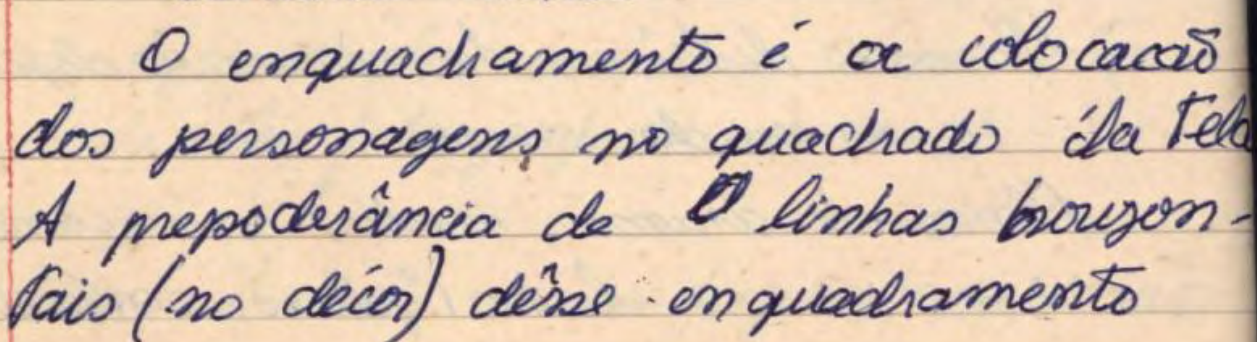 O enquadramento é a colocacaõ
dos personagens no quadrado da Tela
A prepoderância de linhas horizon-
tais (no décor) dêsse enquadramento